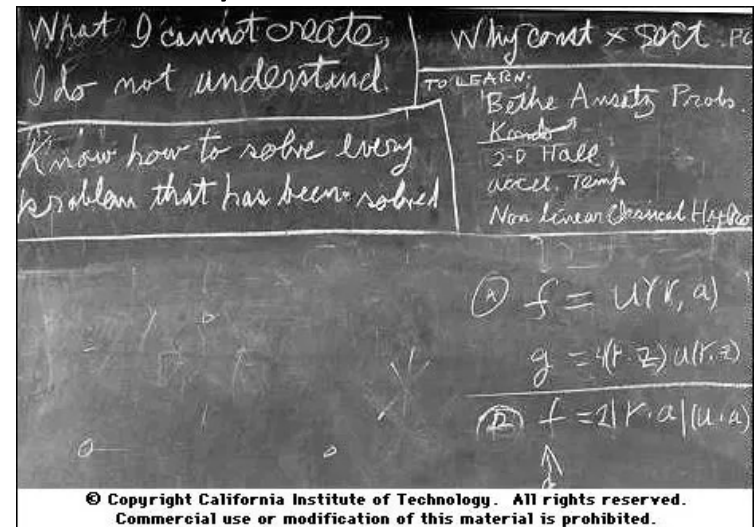 What I cannot create,
I do not understand.
Know how to solve every
problem that has been solved
Why const × sort . PO
TO LEARN:
Bethe Ansatz Probs.
Kondo
2-D Hall
accel. Temp
Non linear Classical Hydro
Ⓐ f = u(r, a)
g = 4(r·z) u(r.z)
Ⓑ f = 2|r·a|(u·a)
© Copyright California Institute of Technology. All rights reserved.
Commercial use or modification of this material is prohibited.